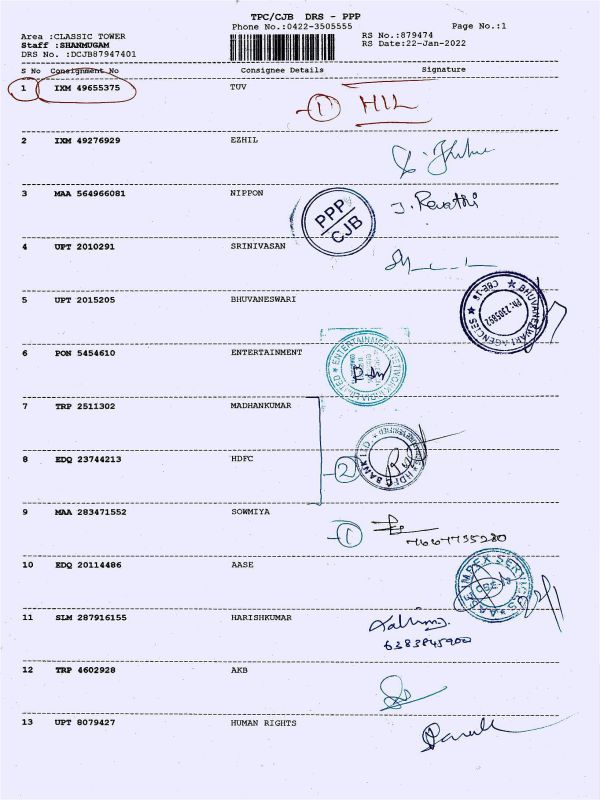 TPC/CJB DRS - PPP
Phone No.:0422-3505555
Page No.:1
Area :CLASSIC TOWER
RS No.:879474
Staff :SHANMUGAM
RS Date:22-Jan-2022
DRS No. :DCJB87947401
S No Consignment No Consignee Details Signature
1 IXM 49655375 TUV 1 HIL
2 IXM 49276929 EZHIL
3 MAA 564966081 NIPPON J. Revathi
PPP
CJB
4 UPT 2010291 SRINIVASAN
5 UPT 2015205 BHUVANESWARI
BHUVANESWARI AGENCIES ★ CBE-18 ★
PH: 2305852
6 PON 5454610 ENTERTAINMENT
ENTERTAINMENT NETWORK INDIA LIMITED
7 TRP 2511302 MADHANKUMAR
8 EDQ 23744213 HDFC 2
HDFC BANK LTD
9 MAA 283471552 SOWMIYA 1
7667735280
10 EDQ 20114486 AASE
IMPEX SERVICES
11 SLM 287916155 HARISHKUMAR
6383845900
12 TRP 4602928 AKB
13 UPT 8079427 HUMAN RIGHTS